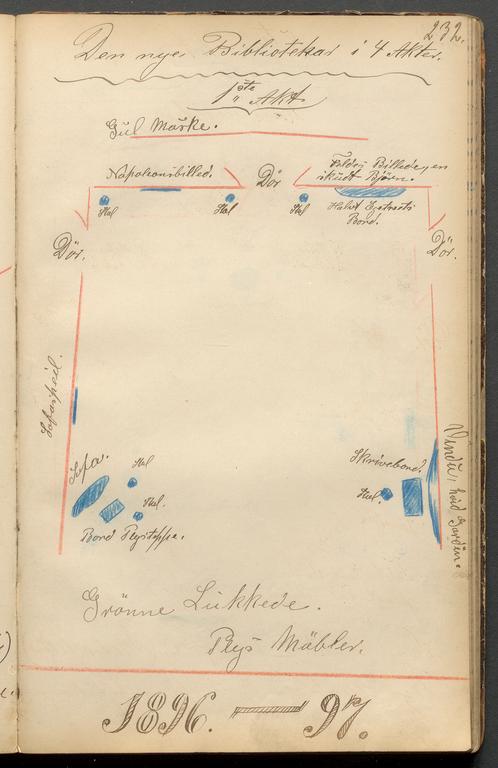 232.
Den nye Bibliotekar i 4 Akter.
1ste Akt
Gul Maske.
Napoleonsbilled.
Dör
Billede, en
skudt Björn.
Stol
Stol
Stol
Halvt
Bord.
Dör.
Dör.
Sofaspeil.
Sofa.
Stol
Stol.
Bord Plystæppe.
Skrivebord.
Stol.
Vindu, hvid Gardin.
Grönne Lukkede.
Plys Mäbler.
1896. — 97.